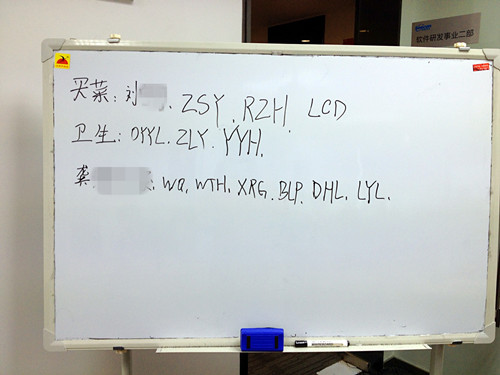 软件研发事业二部
买菜：刘 . ZSY . RZH . LCD
卫生：OYYL . ZLY . YYH .
龚 . WQ , WTH . XRG . BLP . DHL . LYL .